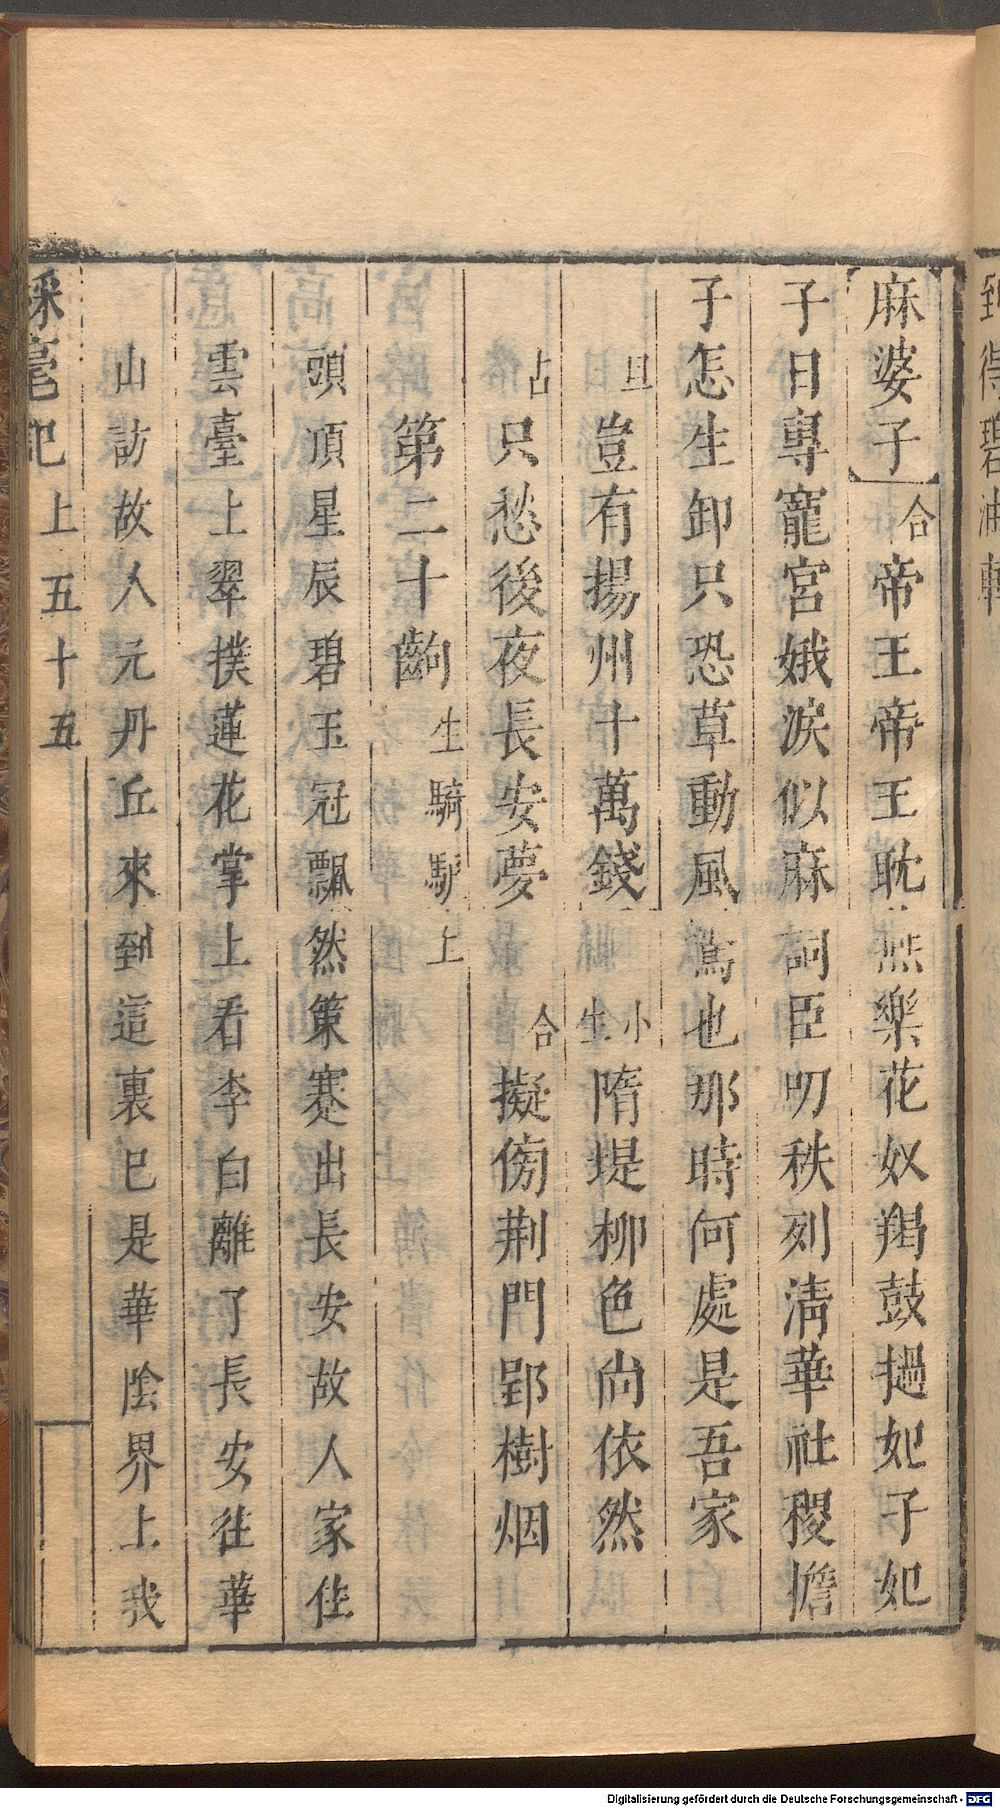 麻婆子合帝王帝王耽燕樂花奴羯鼓撾妃子妃
子日專寵宮娥淚似麻詞臣叨秩列清華社稷擔
子怎生卸只恐草動風驚也那時何處是吾家
旦豈有揚州十萬錢小生隋堤柳色尚依然
占只愁後夜長安夢合擬傍荆門郢樹烟
第二十齣生騎馿上
頭頂星辰碧玉冠飄然策蹇出長安故人家住
雲臺上翠撲蓮花掌上看李白離了長安往華
山訪故人元丹丘來到這裏已是華陰界上我
綵毫記上五十五
Digitalisierung gefördert durch die Deutsche Forschungsgemeinschaft - DFG